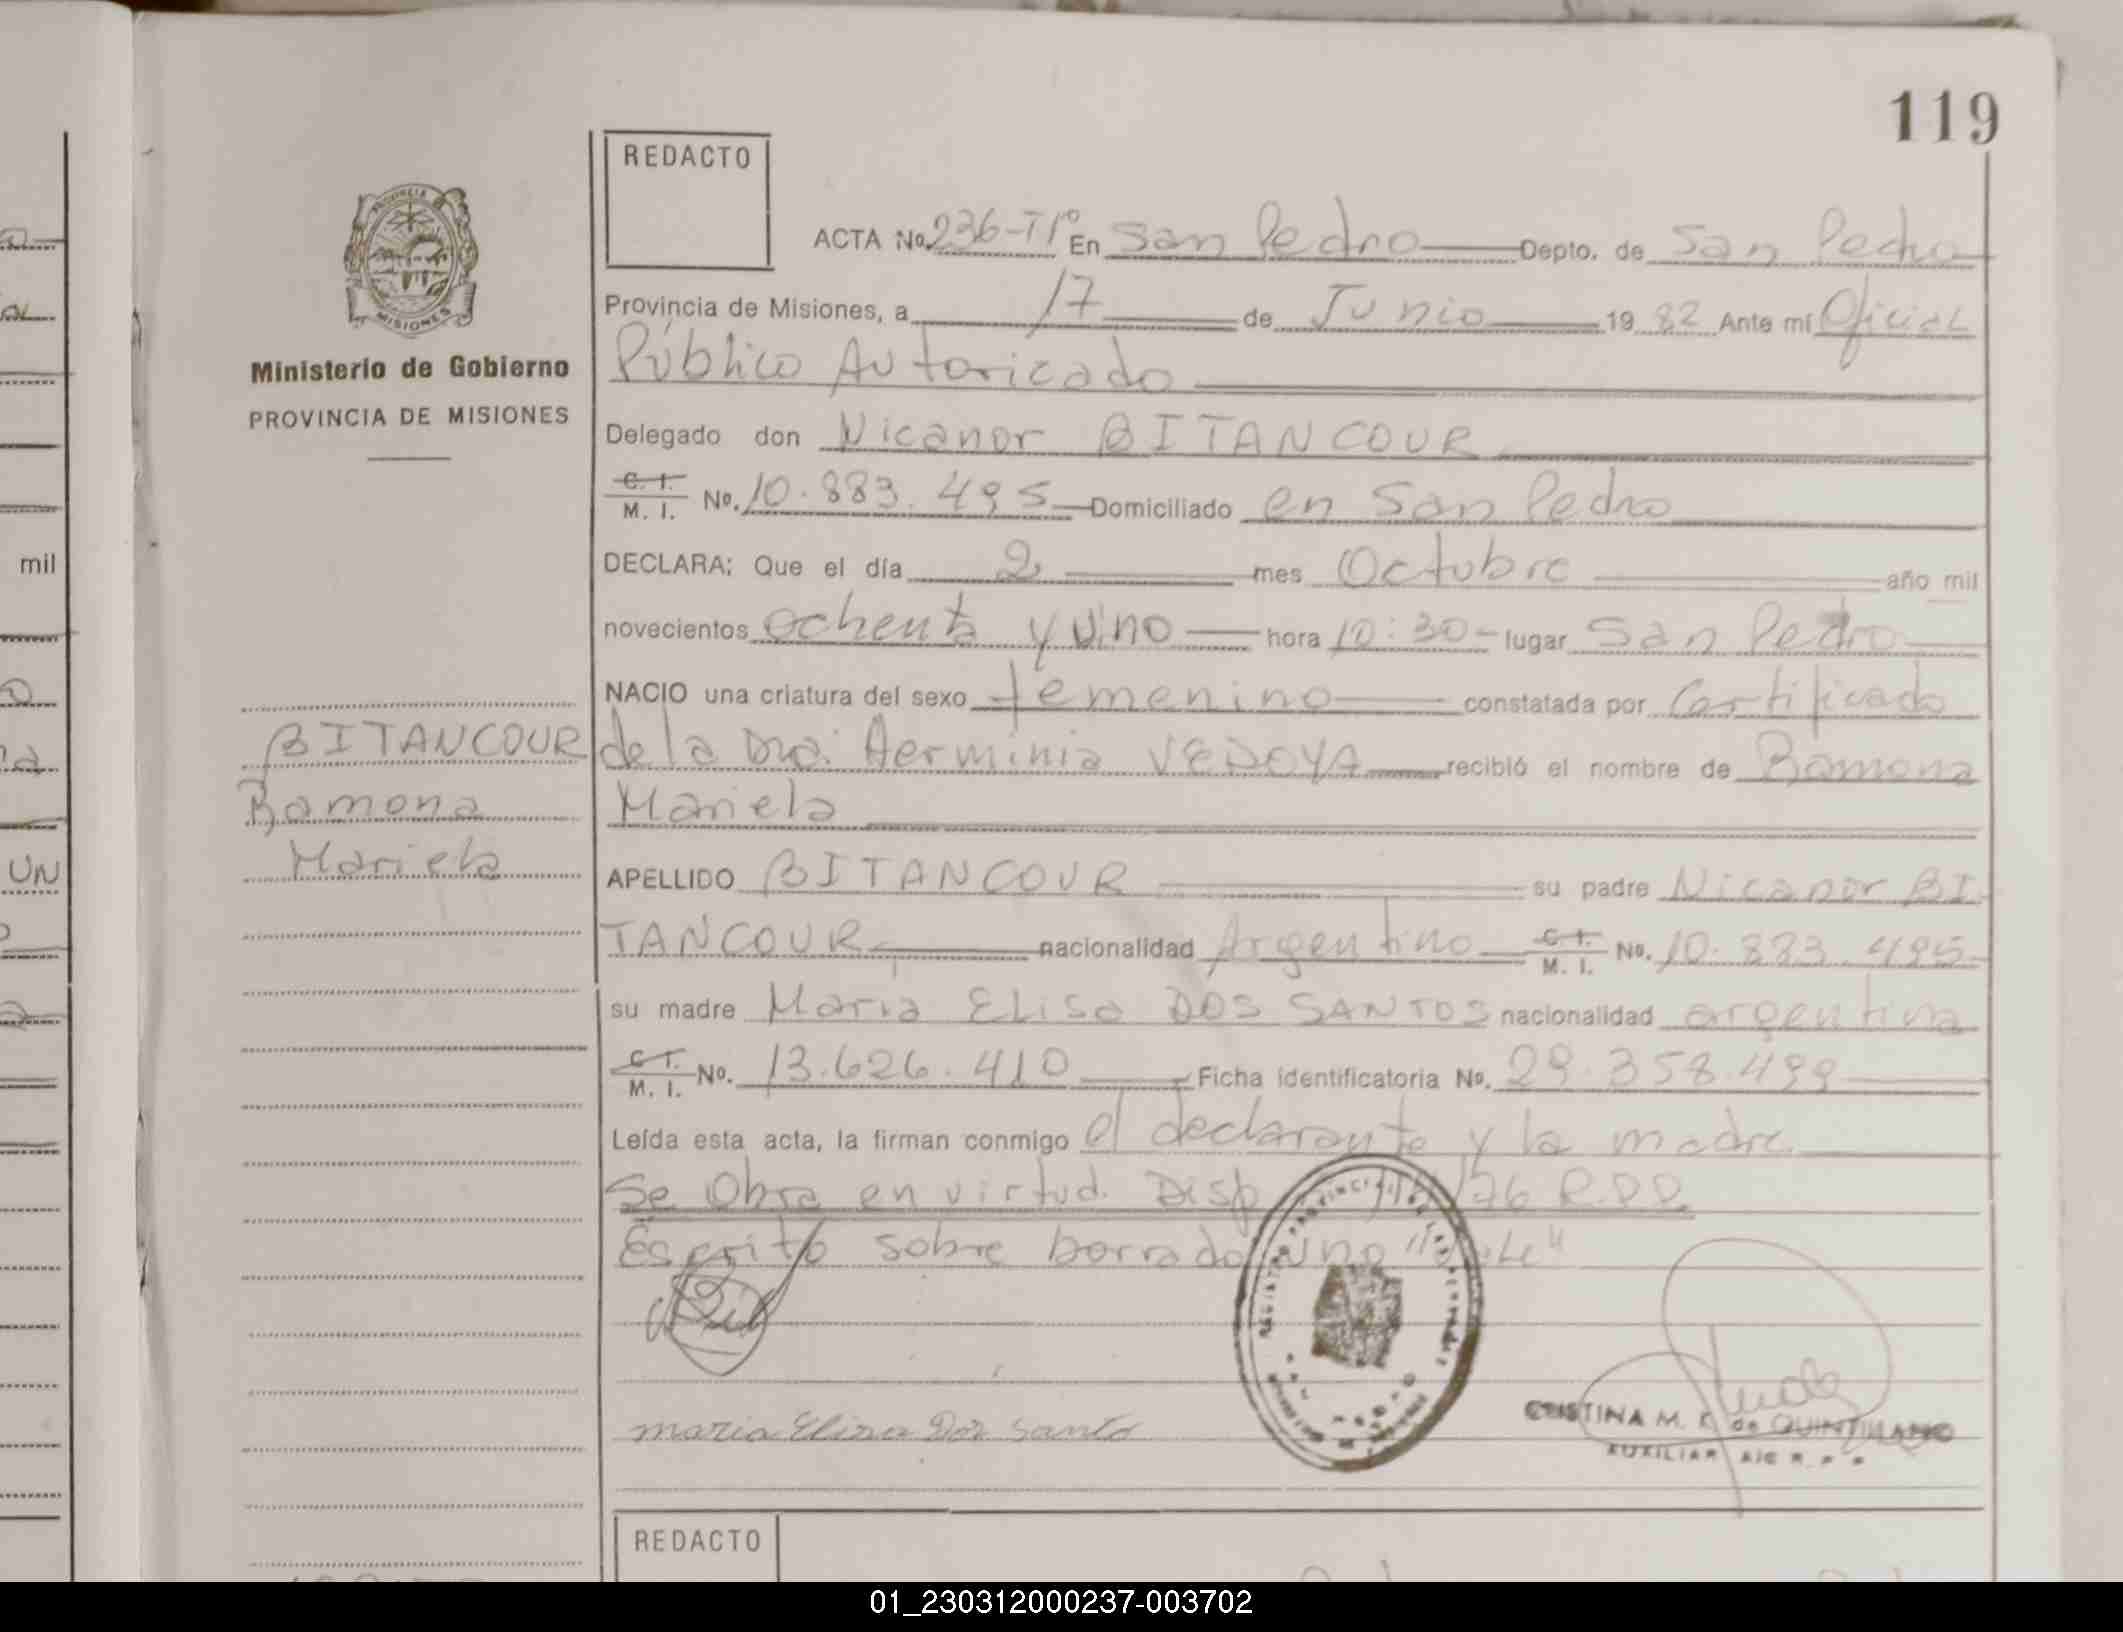 119
REDACTO
ACTA No. 236-Tº En San Pedro Depto. de San Pedro
Provincia de Misiones, a 17 de Junio 19 82 Ante mí Oficial
Público Autoricado
Delegado don Nicanor BITANCOUR
C. I. M. I. No. 10.883.495 Domiciliado en San Pedro
DECLARA: Que el día 2 mes Octubre año mil
novecientos ochenta y uno hora 10:30 lugar San Pedro
NACIO una criatura del sexo femenino constatada por Certificado
de la Dra. Herminia VEDOYA recibió el nombre de Ramona
Mariela
APELLIDO BITANCOUR su padre Nicanor BI
TANCOUR nacionalidad Argentino C. I. M. I. No. 10.883.495
su madre Maria Elisa DOS SANTOS nacionalidad argentina
C. I. M. I. No. 13.626.410 Ficha identificatoria No. 29.358.499
Leída esta acta, la firman conmigo el declarante y la madre
Se Obra en virtud. Disp /76 R.P.P.
Escrito sobre borrado uno
maria Elisa Dos Santo
CRISTINA M. de QUINTILLANO
AUXILIAR
Ministerio de Gobierno
PROVINCIA DE MISIONES
BITANCOUR
Ramona
Mariela
mil
UN
REDACTO
01_230312000237-003702